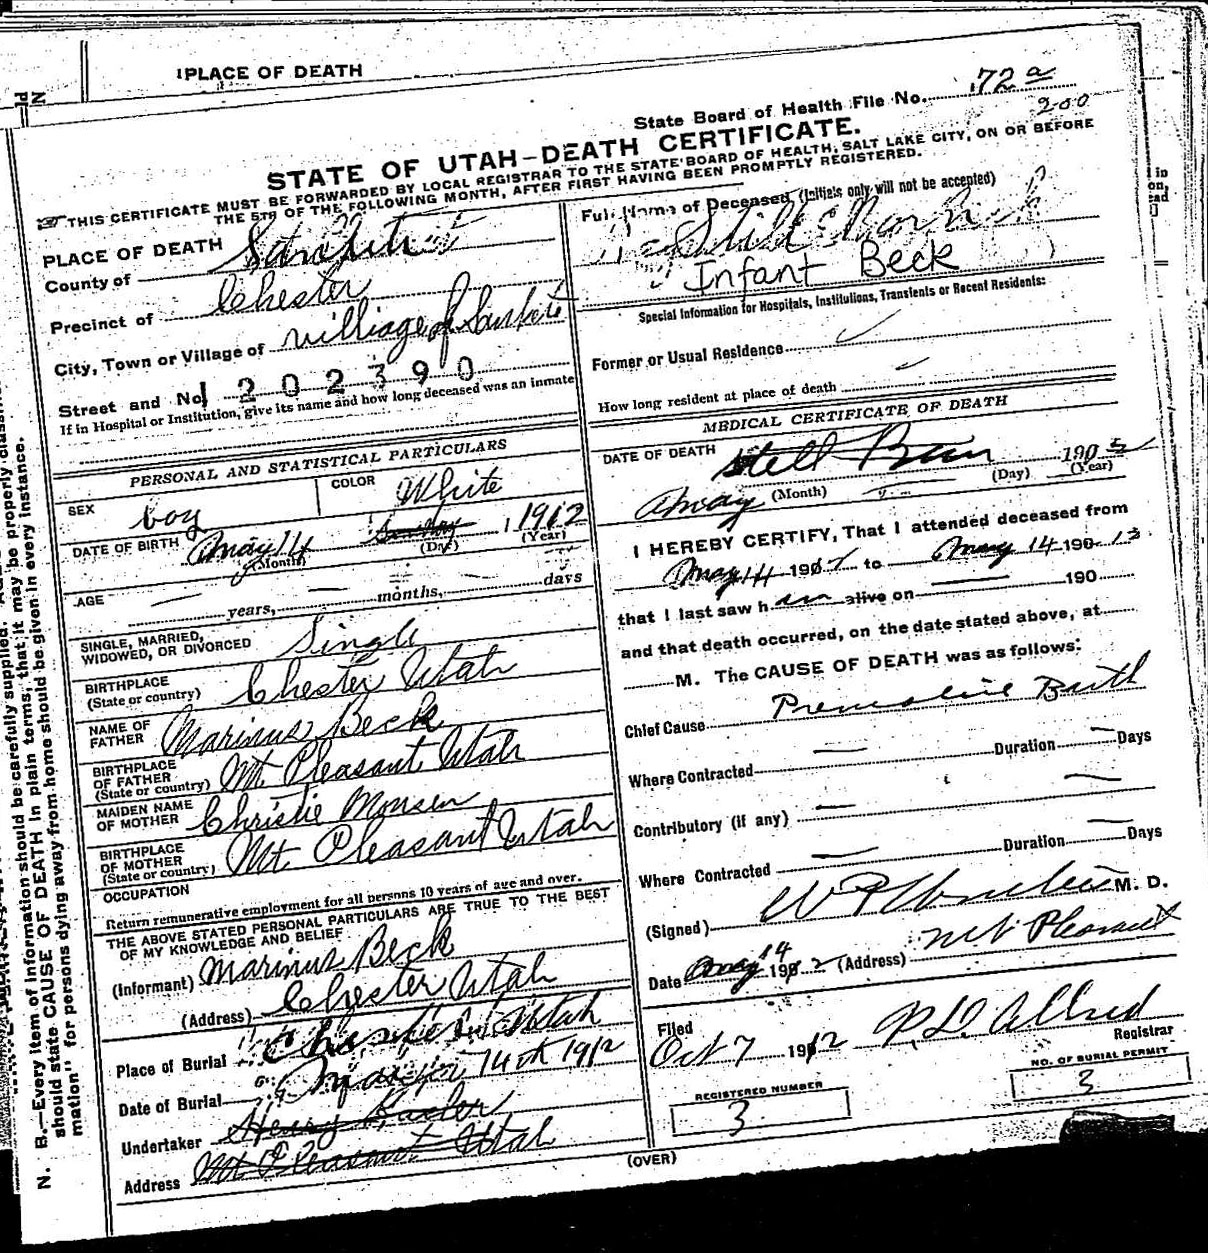 PLACE OF DEATH
State Board of Health File No. 72 a
200
STATE OF UTAH—DEATH CERTIFICATE.
THIS CERTIFICATE MUST BE FORWARDED BY LOCAL REGISTRAR TO THE STATE BOARD OF HEALTH, SALT LAKE CITY, ON OR BEFORE
THE 5TH OF THE FOLLOWING MONTH, AFTER FIRST HAVING BEEN PROMPTLY REGISTERED.
PLACE OF DEATH
County of
Precinct of Chester
City, Town or Village of villiage of
Street and No. 1202390
If in Hospital or Institution, give its name and how long deceased was an inmate
PERSONAL AND STATISTICAL PARTICULARS
SEX boy
COLOR White
DATE OF BIRTH May 14 1912
(Month) (Day) (Year)
AGE — years, — months, — days
SINGLE, MARRIED,
WIDOWED, OR DIVORCED Single
BIRTHPLACE
(State or country) Chester Utah
NAME OF
FATHER Marinus Beck
BIRTHPLACE
OF FATHER
(State or country) Mt. Pleasant Utah
MAIDEN NAME
OF MOTHER Christie Monsen
BIRTHPLACE
OF MOTHER
(State or country) Mt. Pleasant Utah
OCCUPATION
Return remunerative employment for all persons 10 years of age and over.
THE ABOVE STATED PERSONAL PARTICULARS ARE TRUE TO THE BEST
OF MY KNOWLEDGE AND BELIEF
(Informant) Marinus Beck
(Address) Chester Utah
Place of Burial Utah
Date of Burial 14 1912
Undertaker Henry
Address Mt. Pleasant Utah
Full Name of Deceased (Initials only will not be accepted)
Still Born
Infant Beck
Special Information for Hospitals, Institutions, Transients or Recent Residents:
Former or Usual Residence
How long resident at place of death
MEDICAL CERTIFICATE OF DEATH
DATE OF DEATH 190
(Month) (Day) (Year)
May
I HEREBY CERTIFY, That I attended deceased from
May 14 190 to May 14 190
that I last saw h alive on — 190
and that death occurred, on the date stated above, at
M. The CAUSE OF DEATH was as follows:
Chief Cause Birth
Where Contracted — Duration — Days
Contributory (if any) —
Where Contracted — Duration — Days
(Signed) M. D.
Date May 14 190 2 (Address) Mt Pleasant
Filed
Oct 7 1912 Allred
Registrar
REGISTERED NUMBER
3
NO. OF BURIAL PERMIT
3
(OVER)
N. B.—Every item of information should be carefully supplied.
should state CAUSE OF DEATH in plain terms, that it may be properly
mation" for persons dying away from home should be given in every instance.